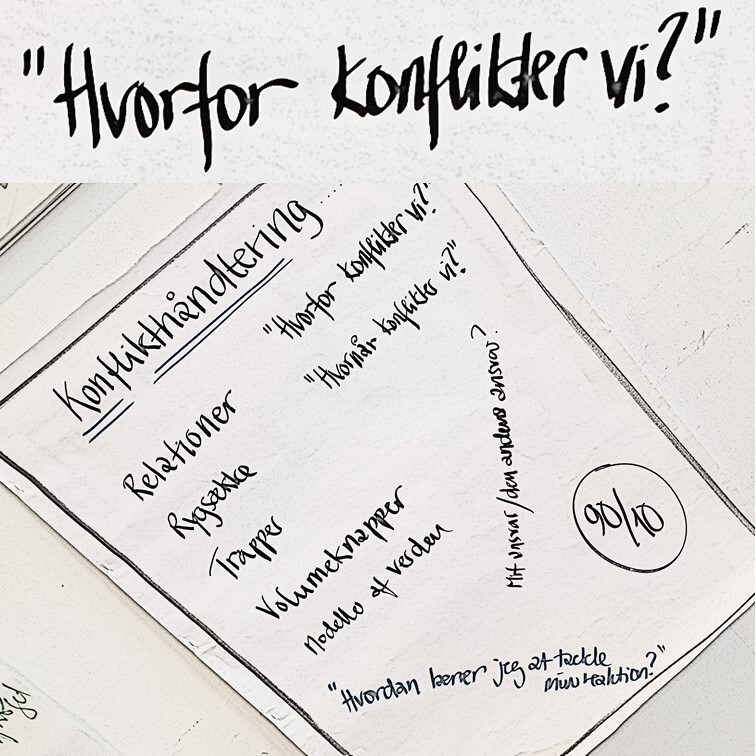 "Hvorfor konflikter vi?"
Konflikthåndtering
"Hvorfor konflikter vi?"
"Hvornår konflikter vi?"
Relationer
Rygsække
Trapper
Volumeknapper
Modeller af verden
Mit ansvar/den andens ansvar?
90/10
"Hvordan lærer jeg at tackle
min reaktion?"